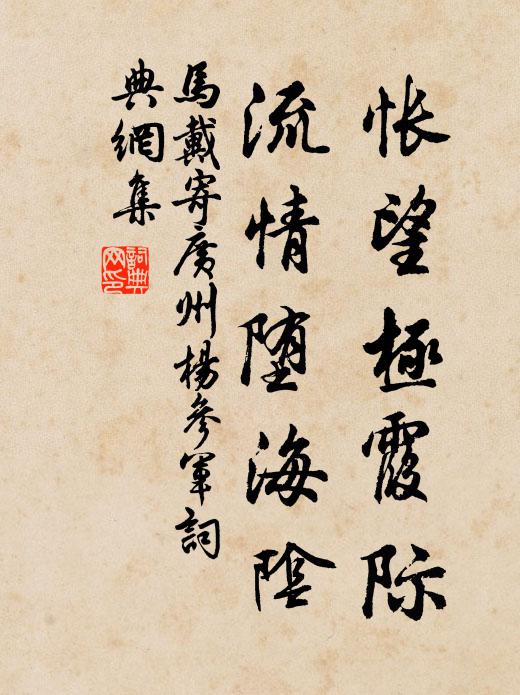 怅望極霞际
流情堕海陰
馬戴寄廣州楊參軍詞
典網集
詞典
网印